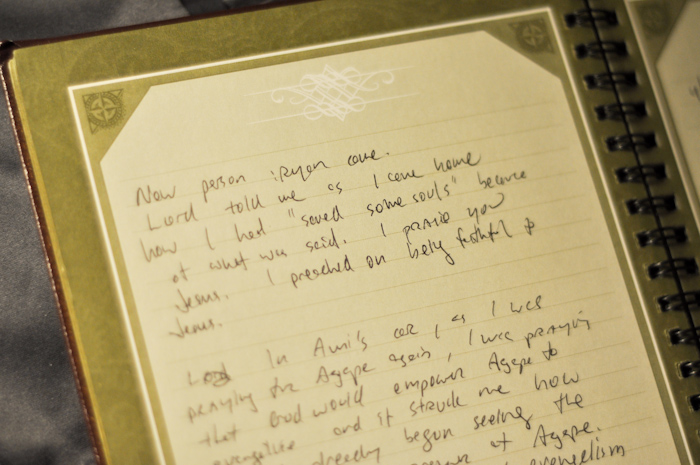 New person : Ryan came.
Lord told me as I came home
how I had "saved some souls" because
of what was said. I praise you
Jesus. I preached on being faithful to
Jesus.
Lord In Ami's car, as I was
praying for Agape again, I was praying
that God would empower Agape to
evangelize and it struck me how
already begun seeing the
at Agape.
evangelism